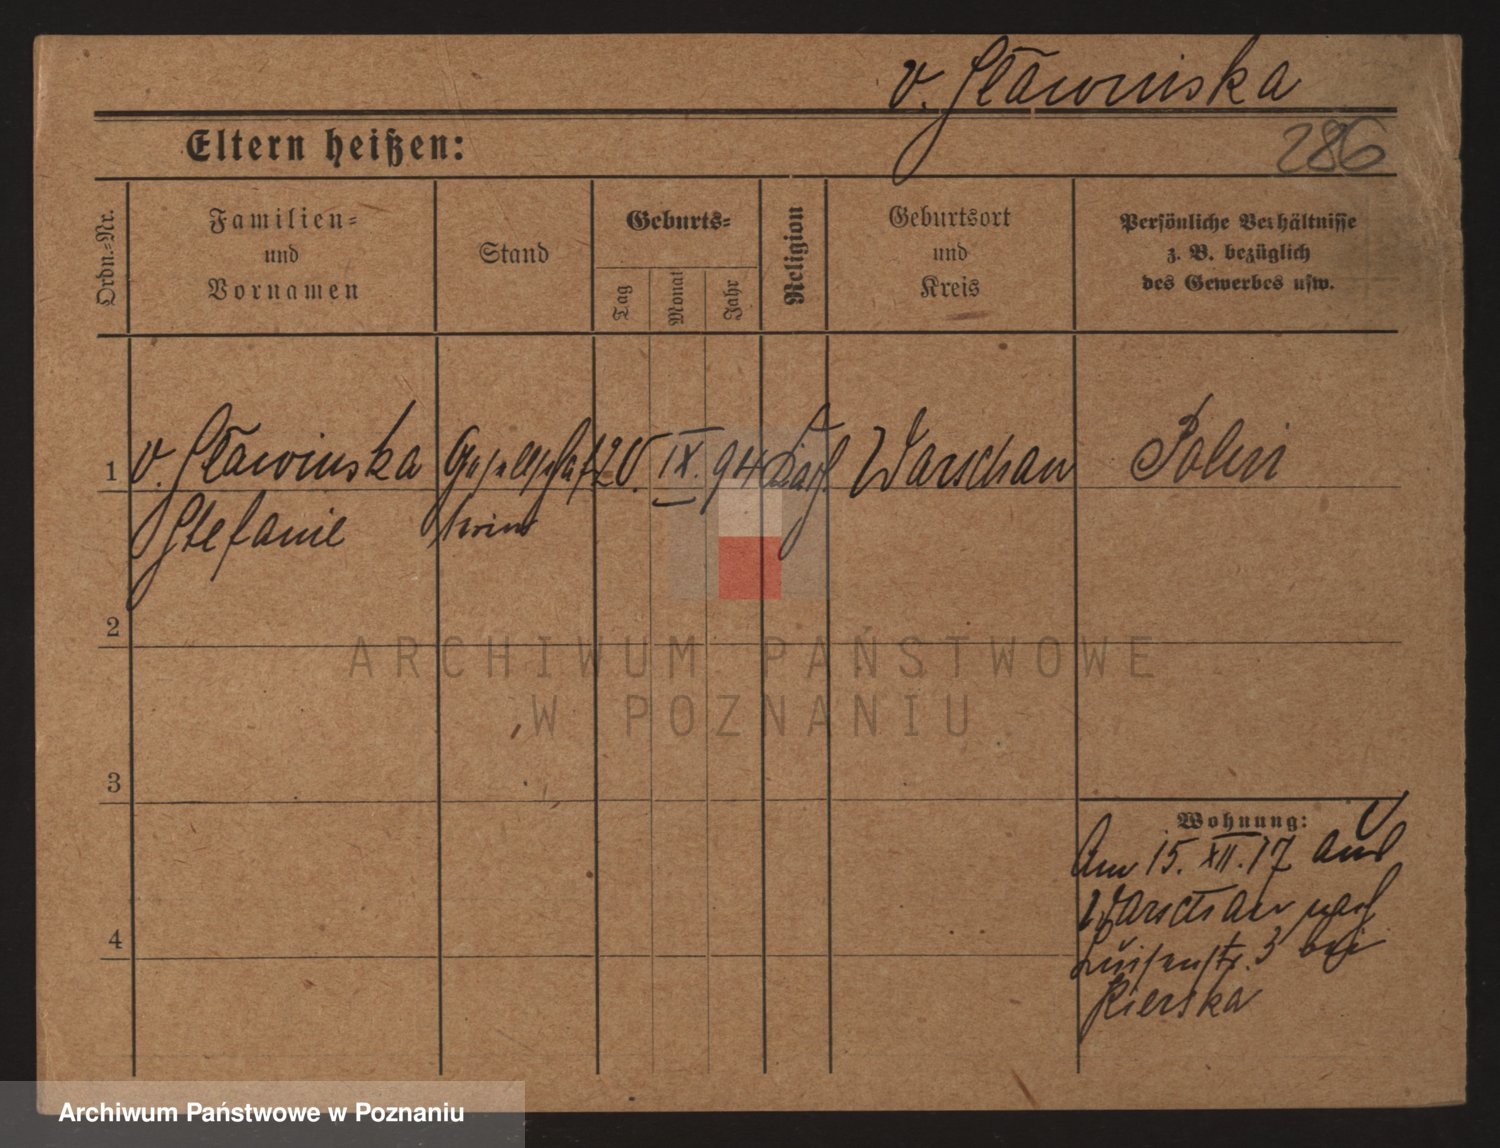 v. Sławinska
286
Eltern heißen:
Ordn.-Nr.
Familien-
und
Vornamen
Stand
Geburts-
Tag
Monat
Jahr
Religion
Geburtsort
und
Kreis
Persönliche Verhältnisse
z. B. bezüglich
des Gewerbes usw.
1 v. Sławinska Gesellschaf 20. IX. 94 kath. Warschau Polin
Stefanie terin
2
3
4
Wohnung:
Am 15. XII. 17 aus
Warschau nach
Luisenstr. 3 bei
Kierska
ARCHIWUM PAŃSTWOWE
W POZNANIU
Archiwum Państwowe w Poznaniu